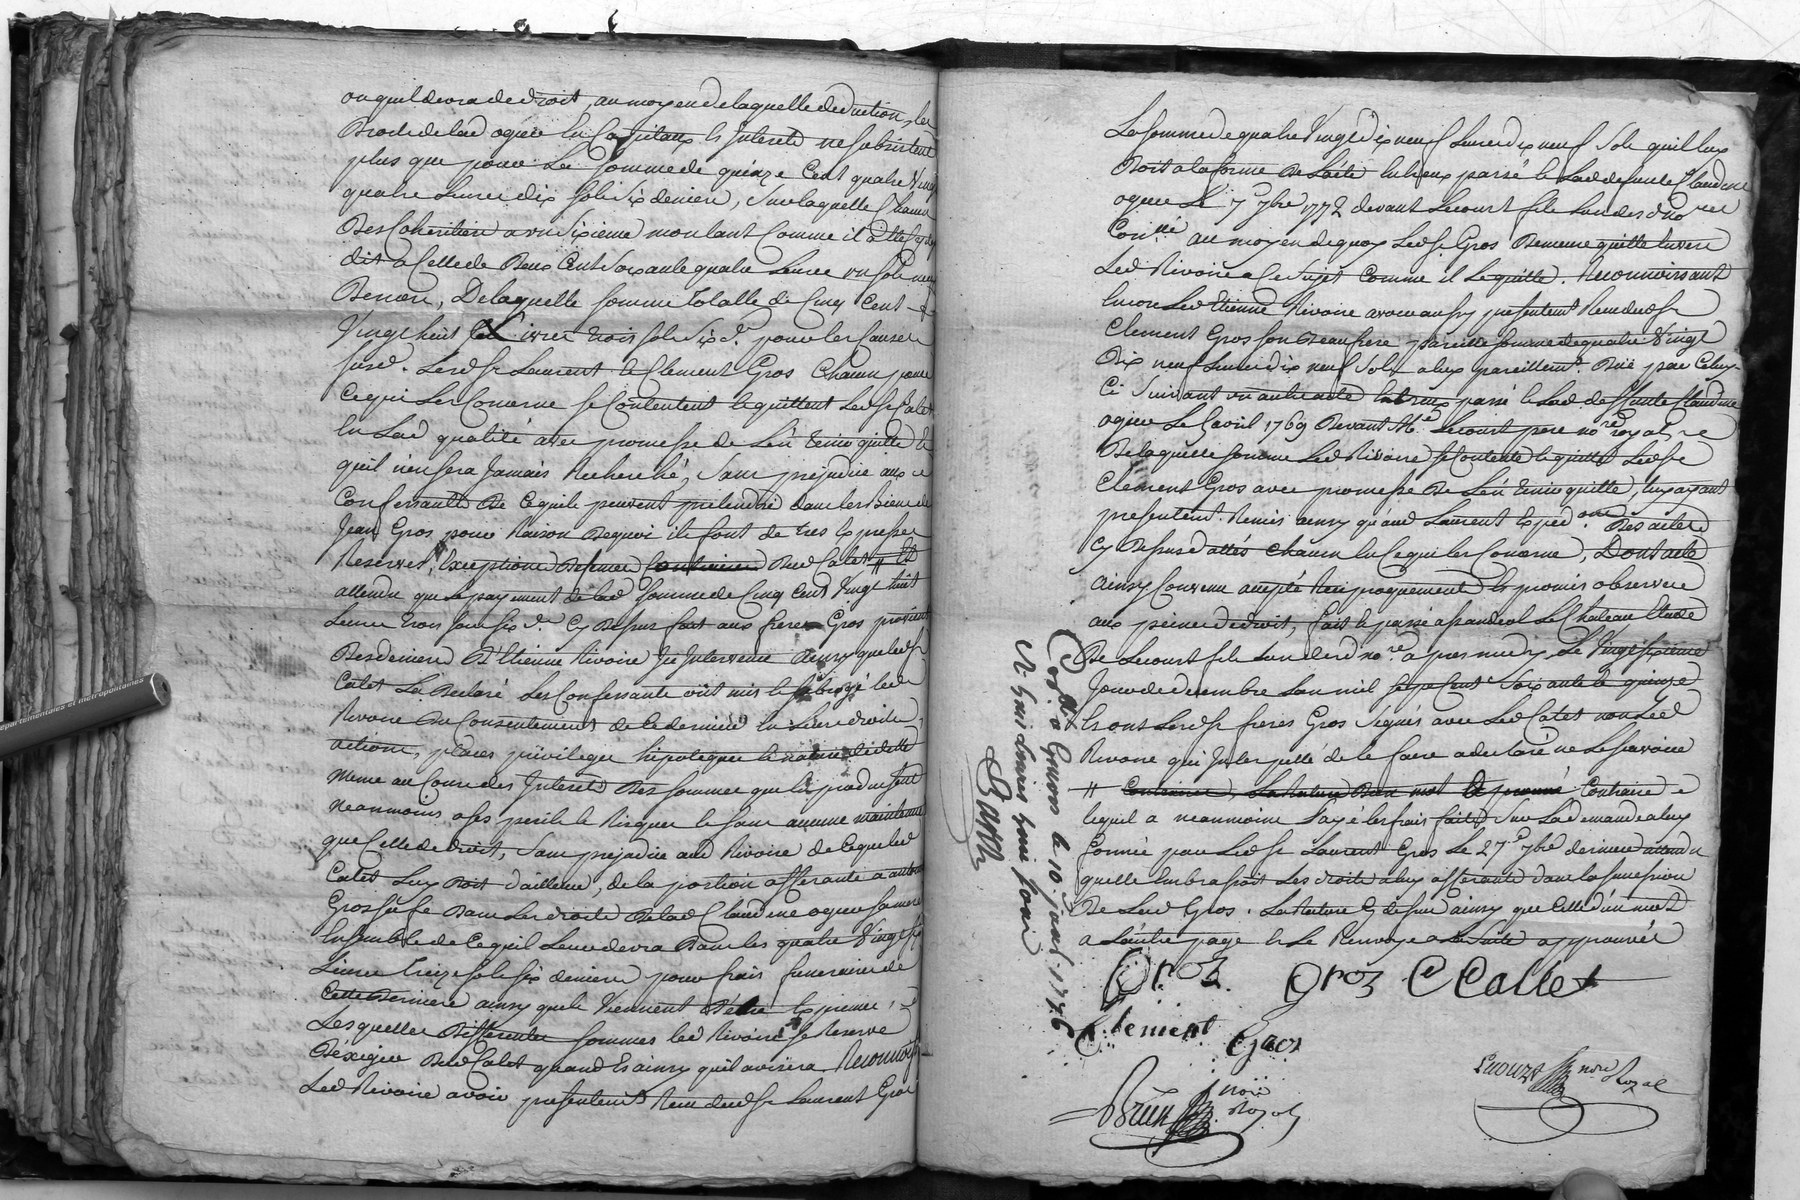 ou quil devra de droit, au moyen de laquelle deduction, les
Droits de lad ogier en Capitaux et Interets ne subsistent
plus que pour La somme de quinze Cent quatre Vingt
quatre Livres dix sols six deniers, sur laquelle Chacun
Des Coheritiers a un sixieme montant Comme il a ette
dit a Celle de Deux Cent soixante quatre Livres un sol neuf
Deniers, De laquelle somme totalle de Cinq Cent
Vingt huit Livres trois sols six d. pour les Causes
susd. Lesd Sr Laurent et Clement Gros Chacun pour
Ce qui Les Concerne se Contentent et quittent Led Sr Calet
En Lad qualité avec promesse de L'en tenir quitte et
quil n'en sera Jamais Recherché, sans prejudice aux
Confessants De Ce quils peuvent pretendre dans les Biens de
Jean Gros pour Raison Dequoi ils font de tres Expresses
Reserves, Exceptions Deffenses Dud Calet // Et
attendu que Le payement de lad somme de Cinq Cent Vingt huit
Livres trois sols six d. Cy Dessus fait aux freres Gros provient
Des deniers D'Etienne Rivoire Icy Intervenu Ainsy que led Sr
Calet L'a Declaré Les Confessants ont mis et subrogé led
Rivoire Du Consentement de Ce dernier en leurs droits
actions, places privileges hipoteques et nature de dette
meme au Cours des Interets Des sommes qui En produisent
neanmoins a ses perils et Risques et sans aucune maintenue
que Celle de droit, sans prejudice aud Rivoire de Ce que led
Calet Luy Doit d'ailleurs, de la portion afferante a antoine
Gros susd Dans Les droits De lad Claudine ogier sa mere
Ensemble de Ce quil Leur devra Dans les quatre Vingt
Livres treize sols six deniers pour frais funeraires de
Cette Derniere ainsy quils Viennent D'etre Exprimés,
Lesquelles Differentes sommes led Rivoire se Reserve
D'exiger Dud Calet quand Et ainsy quil avisera Reconnoissant
Led Rivoire avoir presentement Reçu dud Sr Laurent Gros
La somme de quatre Vingt dix neuf Livres dix neuf sols quil luy
Doit a la forme De L'acte Entr'eux passé et Lad deffunte Claudine
ogier Le 7e 7bre 1772 devant Lecourt fils L'un des d Nores
Con.né au moyen de quoy Led Sr Gros Demeure quitte Envers
Led Rivoire a Ce sujet Comme il le quitte. Reconnoissant
Encore Led Etienne Rivoire avoir aussy presentement Reçu dud Sr
Clement Gros son Beaufrere pareille somme de quatre Vingt
Dix neuf Livres dix neuf sols a luy pareillemt. Due par Celuy
Ci suivant un autre acte Entr'eux passé et Lad deffunte Claudine
ogier Le avril 1769 Devant Me Lecourt pere nore royal
De laquelle somme Led Rivoire se Contente et quitte Led Sr
Clement Gros avec promesse De L'en tenir quitte, luy ayant
presentemt. Remis ainsy qu'aud Laurent Exped.on Des actes
Cy Dessus dattés Chacun En Ce qui les Concerne, Dont acte
Ainsy Convenu accepté Reciproquement Et promis observer
aux peines de droit, fait et passé a Le Chateau Etude
De Lecourt fils L'un desd nore apres midy, Le Vingt sixieme
Jour de decembre L'an mil sept Cent soixante et quinze
Et ont Lesd Sr freres Gros signés avec Led Calet non Led
Rivoire qui Interpellé de le faire a declaré ne Le savoir
lequel a neanmoins payé les frais faits sur La demande a luy
formée par Led Sr Laurent Gros Le 27e 7bre dernier attendu
quelle Embrassoit Les droits a luy afferants dans la succession
De Led Gros. La Rature Cy dessus ainsy que Celle d'un mot
a L'autre page et Le Renvoy a la suite approuvés
Gros Gros C Callet
Clement Gros
Lecourt fils nore Royal
Brun nore Royal
Con.lé a Givors le 10 Janv. 1776
R. huit livres
Barth